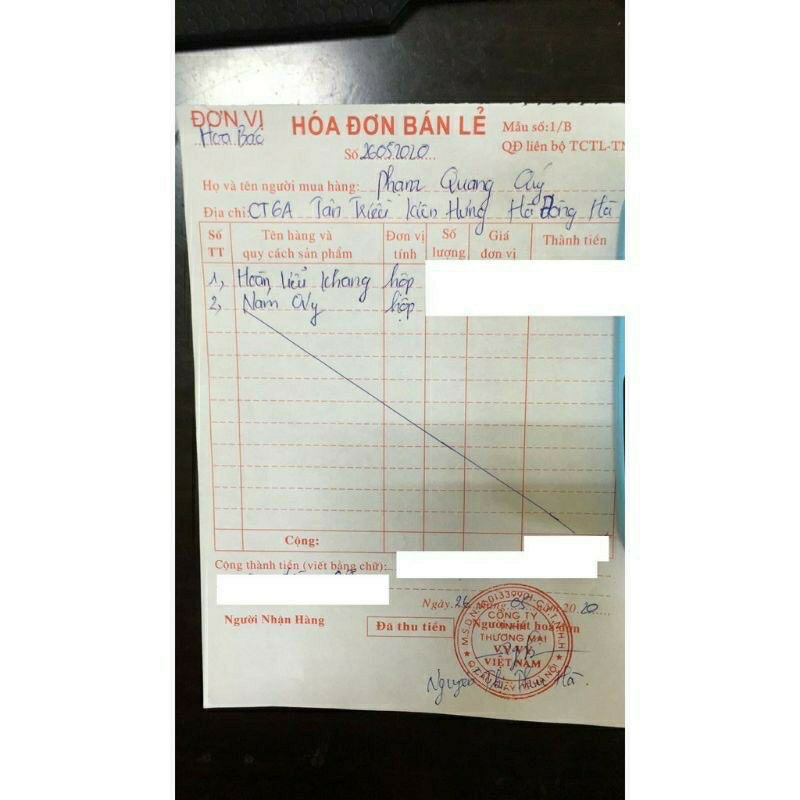 ĐƠN VỊ
Hoa Bác
HÓA ĐƠN BÁN LẺ
Số 26052020
Mẫu số:1/B
QĐ liên bộ TCTL-TN
Họ và tên người mua hàng: Phạm Quang Quý
Địa chỉ: CT6A Tân Triều Kiến Hưng Hà Đông Hà
Số TT Tên hàng và quy cách sản phẩm Đơn vị tính Số lượng Giá đơn vị Thành tiền
1, Hoàn Kiểu Khang hộp
2, Nấm hộp
Cộng:
Cộng thành tiền (viết bằng chữ):
Ngày 26 tháng 05 năm 2020
Người Nhận Hàng
Đã thu tiền
Người viết hoá đơn
CÔNG TY
TNHH
THƯƠNG MẠI
VY VY
VIỆT NAM
Q. CẦU GIẤY - TP. HÀ NỘI
Nguyễn Thị Thu Hà.